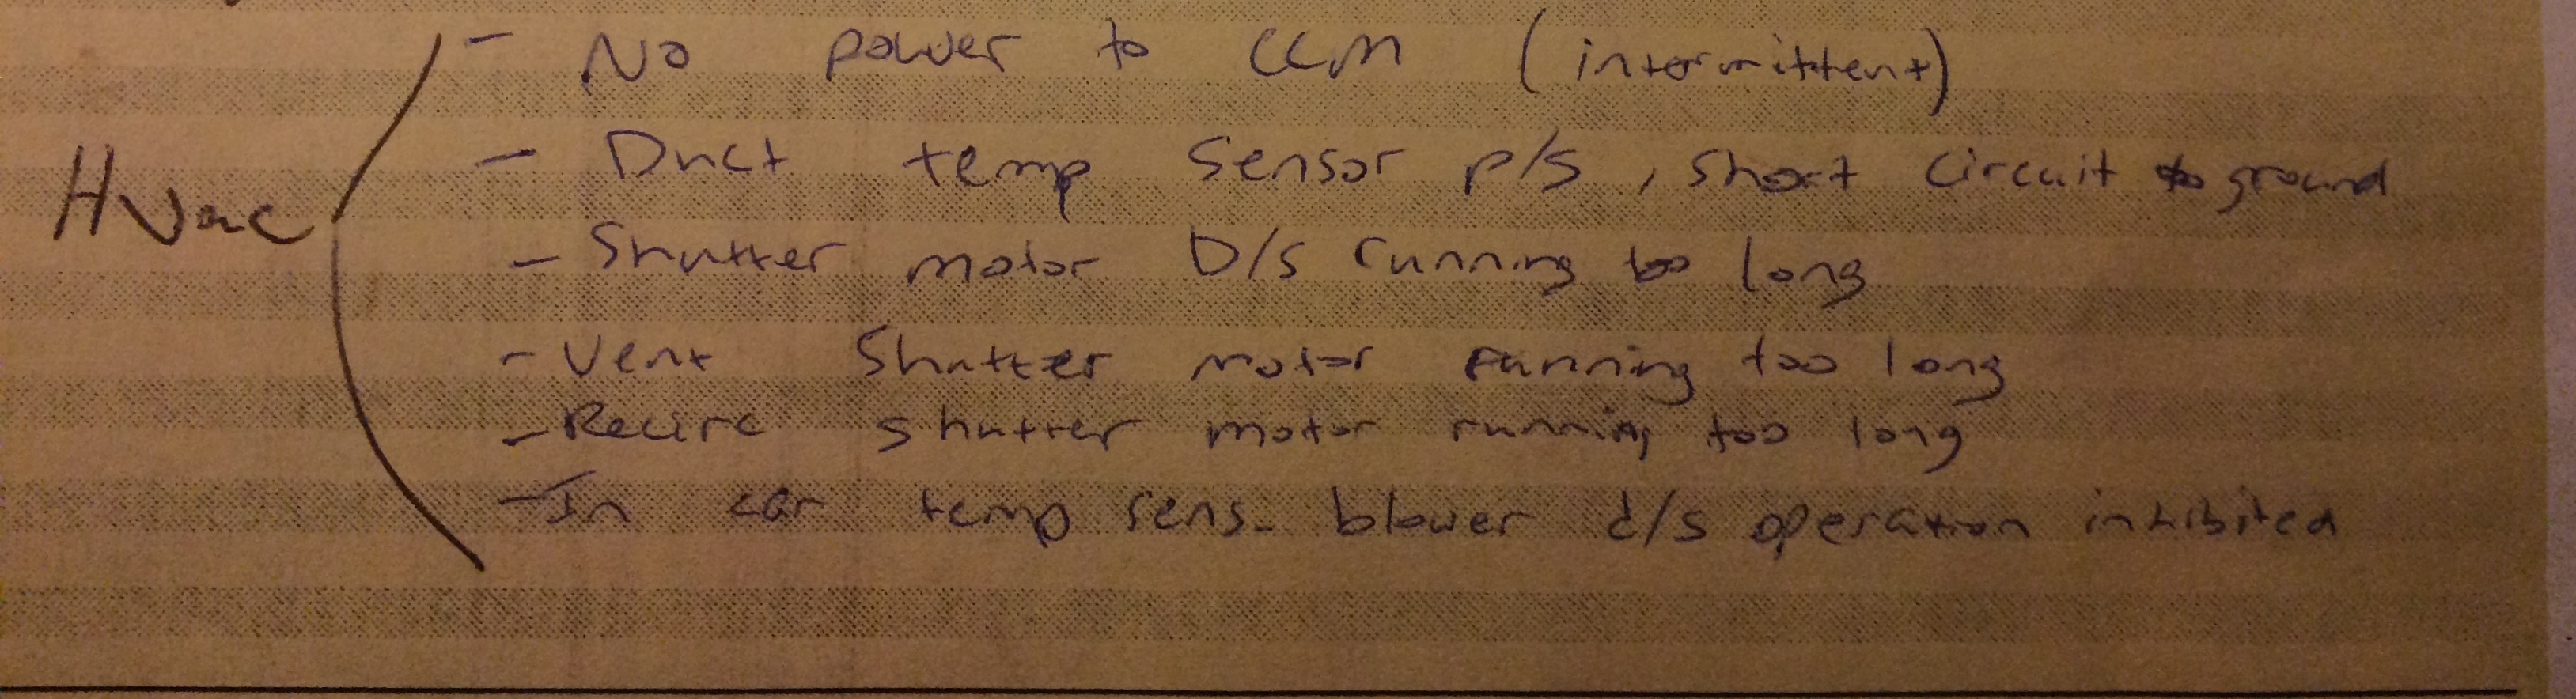 - No power to CCM (intermittent)
- Duct temp sensor p/s, short circuit to ground
Hvac
- Shutter motor D/s running too long
- Vent Shutter motor running too long
- Recirc shutter motor running too long
- In car temp sens. blower d/s operation inhibited